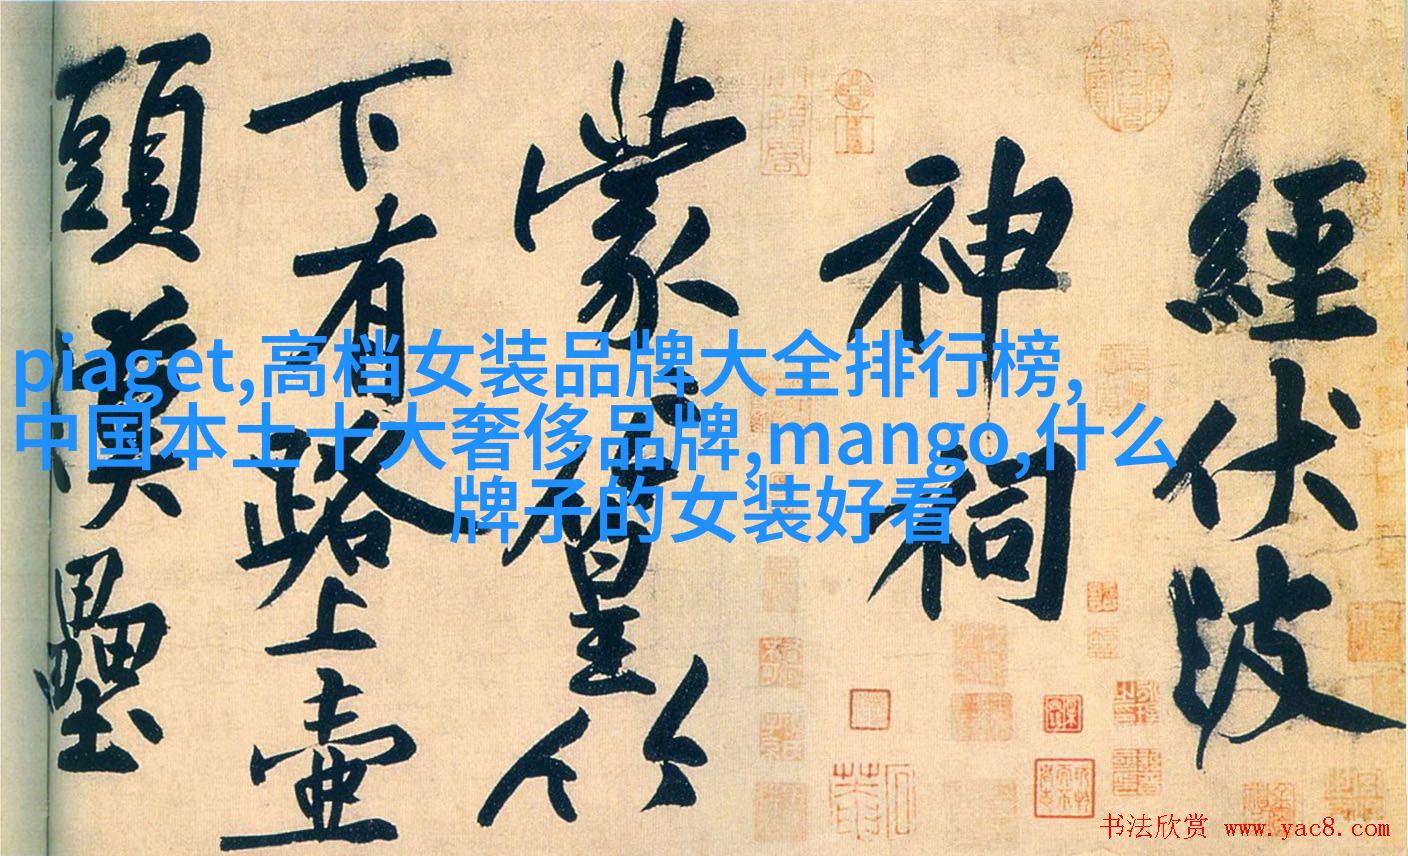 經伏波
神祠
蒙篁竹
下有路上壺
頭漢壘
piaget,高档女装品牌大全排行榜,
中国本土十大奢侈品牌,mango,什么
牌子的女装好看
书法欣赏 www.yac8.com